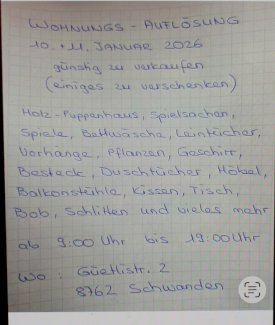 WOHNUNGS-AUFLÖSUNG
10. + 11. JANUAR 2026
günstig zu verkaufen
(einiges zu verschenken)
Holz-Puppenhaus, Spielsachen,
Spiele, Bettwäsche, Leintücher,
Vorhänge, Pflanzen, Geschirr,
Besteck, Duschtücher, Möbel,
Balkonstühle, Kissen, Tisch,
Bob, Schlitten und vieles mehr
ab 9:00 Uhr bis 19:00 Uhr
Wo : Güetlistr. 2
8762 Schwanden